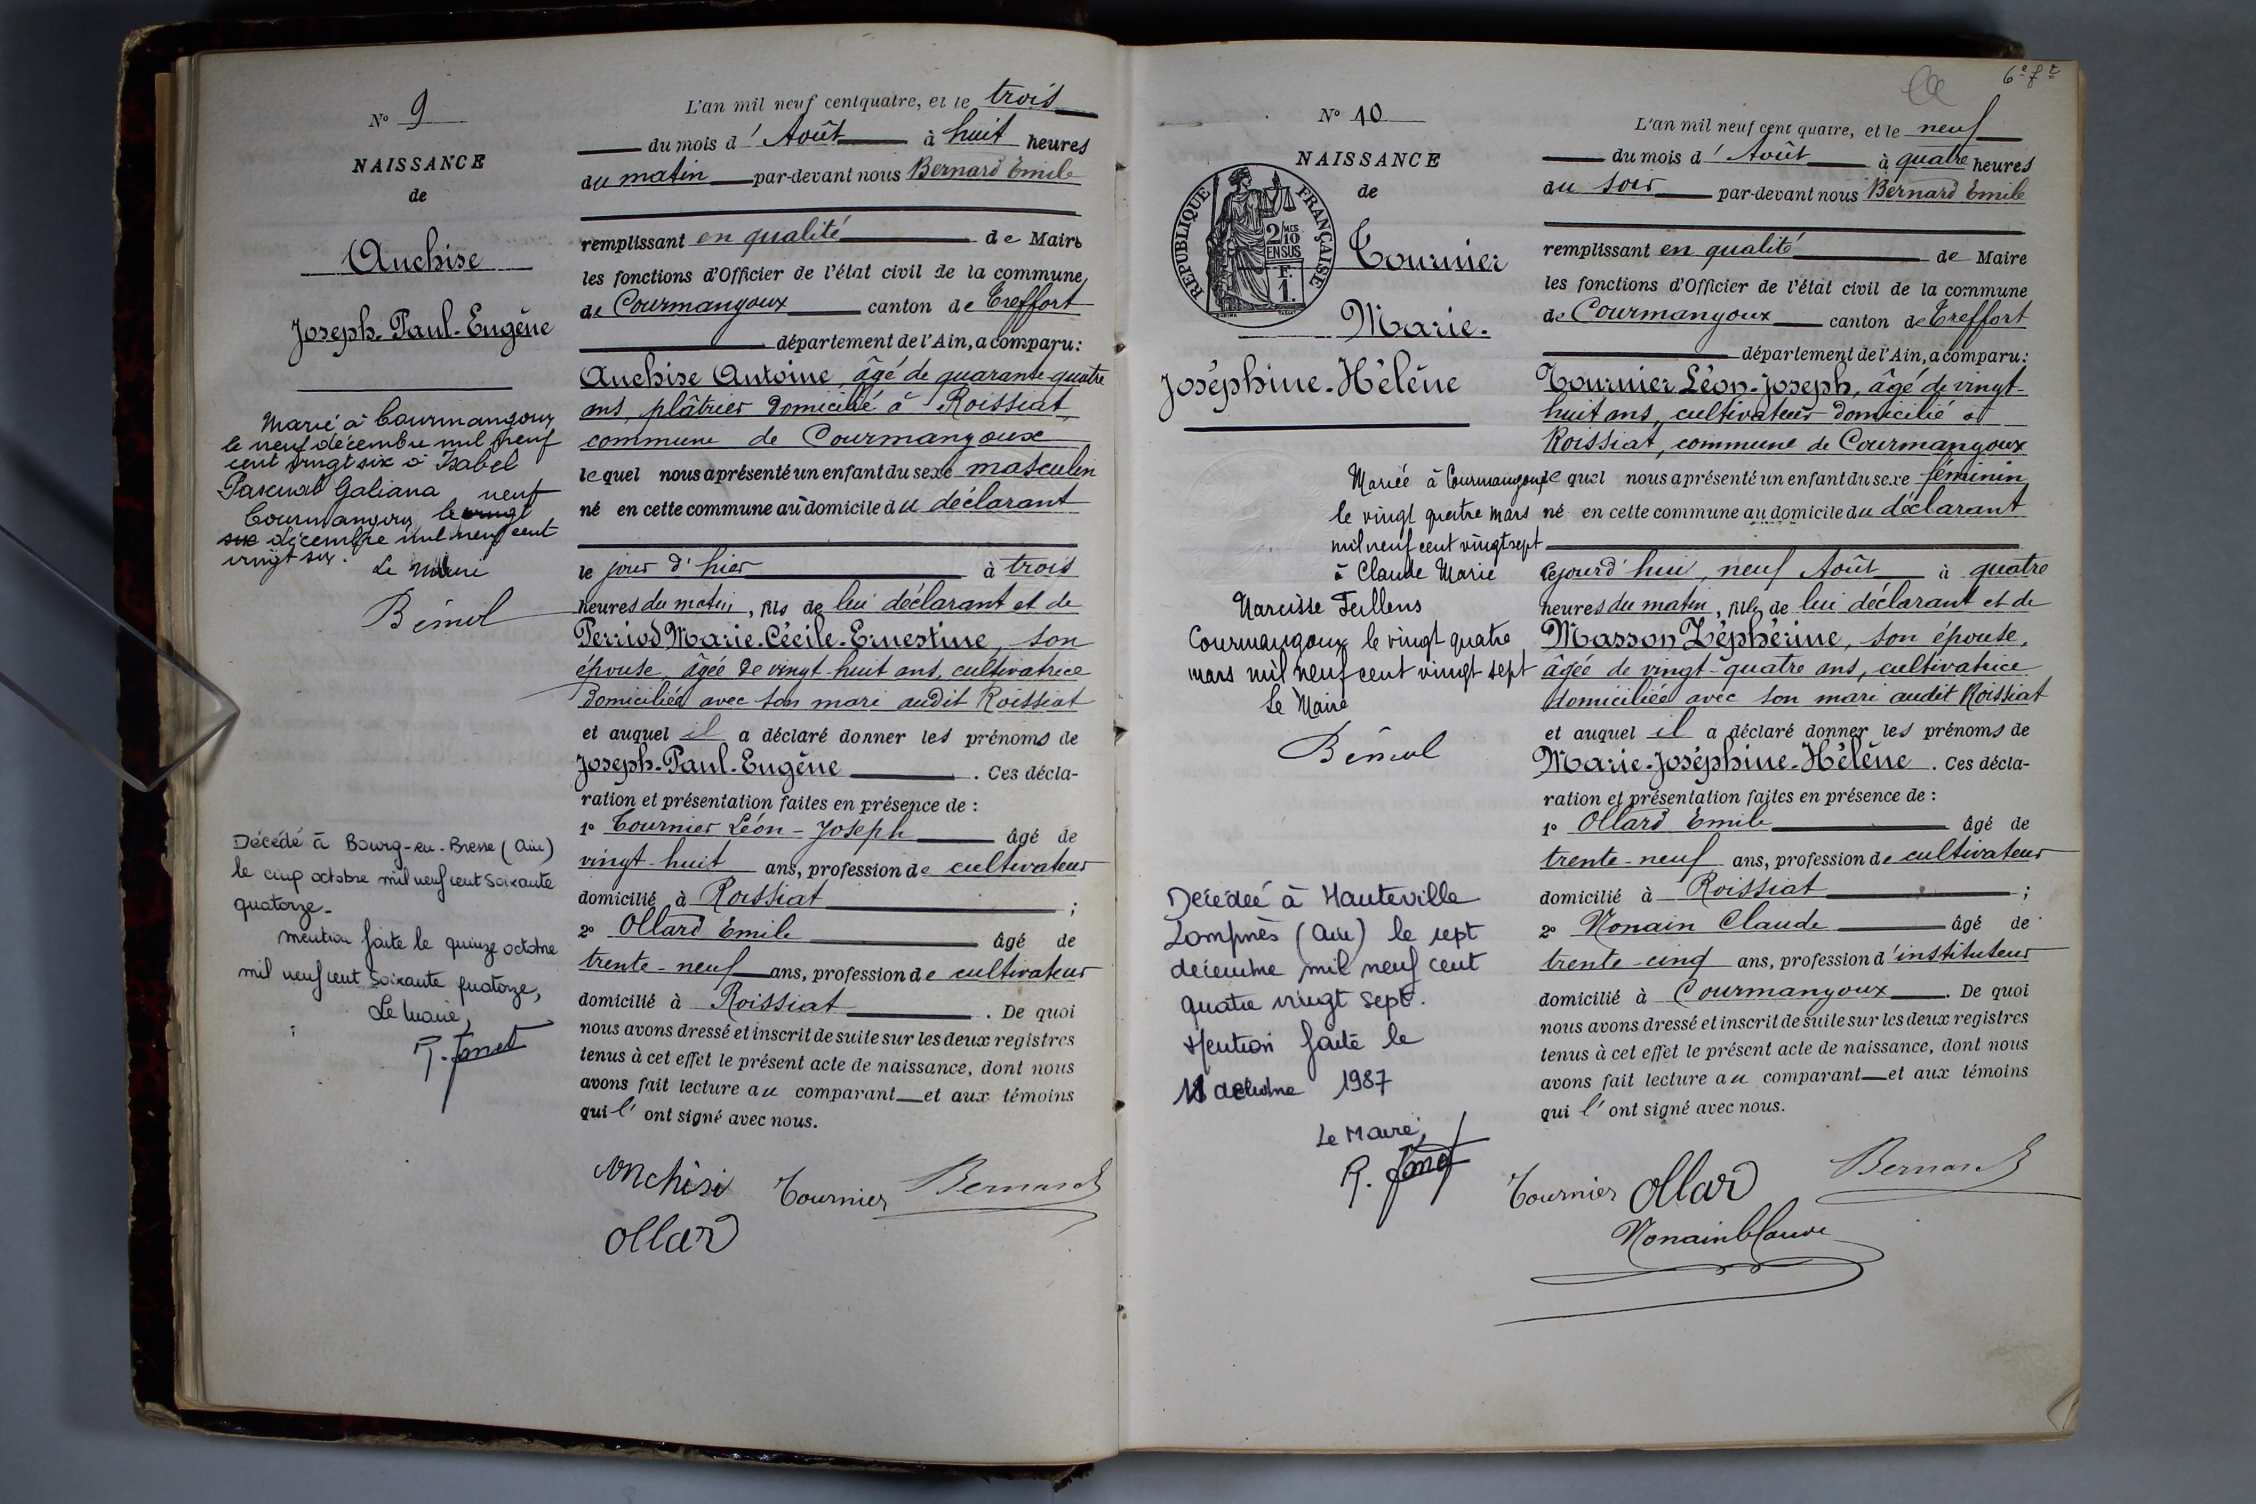 N° 9
NAISSANCE
de
Anchise
Joseph-Paul-Eugène
Marié à Courmangoux
le neuf décembre mil neuf
cent vingt six à Isabel
Pascual Galiana
neuf
Courmangoux, le vingt
six décembre mil neuf cent
vingt six.
Le Maire
Décédé à Bourg-en-Bresse (Ain)
le cinq octobre mil neuf cent soixante
quatorze.
mention faite le quinze octobre
mil neuf cent soixante quatorze,
Le Maire,
L'an mil neuf cent quatre, et le trois
du mois d'Août à huit heures
du matin par-devant nous Bernard Emile
remplissant en qualité de Maire
les fonctions d'Officier de l'état civil de la commune
de Courmangoux canton de Treffort
département de l'Ain, a comparu:
Anchise Antoine, âgé de quarante-quatre
ans, plâtrier domicilié à Roissiat,
commune de Courmangoux
lequel nous a présenté un enfant du sexe masculin
né en cette commune au domicile du déclarant
le jour d'hier à trois
heures du matin, fils de lui déclarant et de
Perriod Marie-Cécile-Ernestine, son
épouse, âgée de vingt-huit ans, cultivatrice
domiciliée avec son mari audit Roissiat
et auquel il a déclaré donner les prénoms de
Joseph-Paul-Eugène. Ces décla-
ration et présentation faites en présence de :
1° Tournier Léon-Joseph âgé de
vingt-huit ans, profession de cultivateur
domicilié à Roissiat ;
2° Ollard Emile âgé de
trente-neuf ans, profession de cultivateur
domicilié à Roissiat. De quoi
nous avons dressé et inscrit de suite sur les deux registres
tenus à cet effet le présent acte de naissance, dont nous
avons fait lecture au comparant et aux témoins
qui l'ont signé avec nous.
Anchisi Tournier Bernard
Ollard
6e ft
N° 10
NAISSANCE
de
REPUBLIQUE FRANÇAISE
2/10
MES
EN SUS
F.
1.
Tournier
Marie-
Joséphine-Hélène
Mariée à Courmangoux
le vingt quatre mars
mil neuf cent vingt sept
à Claude Marie
Narcisse Feillens
Courmangoux le vingt quatre
mars mil neuf cent vingt sept
Le Maire
Décédée à Hauteville
Lompnès (Ain) le sept
décembre mil neuf cent
quatre vingt sept.
Mention faite le
1987
Le Maire,
L'an mil neuf cent quatre, et le neuf
du mois d'Août à quatre heures
du soir par-devant nous Bernard Emile
remplissant en qualité de Maire
les fonctions d'Officier de l'état civil de la commune
de Courmangoux canton de Treffort
département de l'Ain, a comparu:
Tournier Léon-Joseph, âgé de vingt-
huit ans, cultivateur domicilié à
Roissiat, commune de Courmangoux
lequel nous a présenté un enfant du sexe féminin
né en cette commune au domicile du déclarant
cejourd'hui, neuf Août à quatre
heures du matin, fille de lui déclarant et de
Masson Zéphérine, son épouse,
âgée de vingt-quatre ans, cultivatrice
domiciliée avec son mari audit Roissiat
et auquel il a déclaré donner les prénoms de
Marie-Joséphine-Hélène. Ces décla-
ration et présentation faites en présence de :
1° Ollard Emile âgé de
trente-neuf ans, profession de cultivateur
domicilié à Roissiat ;
2° Monain Claude âgé de
trente-cinq ans, profession d'instituteur
domicilié à Courmangoux. De quoi
nous avons dressé et inscrit de suite sur les deux registres
tenus à cet effet le présent acte de naissance, dont nous
avons fait lecture au comparant et aux témoins
qui l'ont signé avec nous.
Tournier Ollard Bernard
Monain Claude